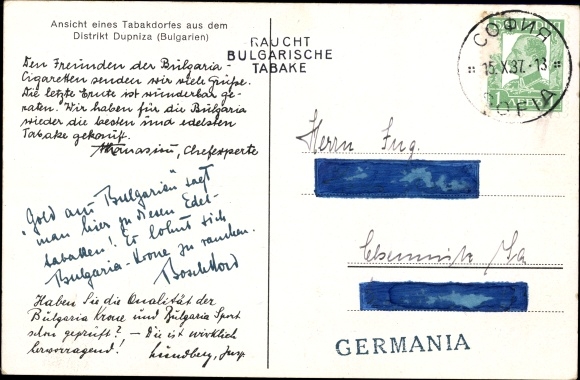 Ansicht eines Tabakdorfes aus dem
Distrikt Dupniza (Bulgarien)
RAUCHT
BULGARISCHE
TABAKE
СОФИЯ
15.X.37.-13
SOFIA
Den Freunden der Bulgaria-
Cigaretten senden wir viele Grüße.
Die letzte Ernte ist wunderbar ge-
raten. Wir haben für die Bulgaria
wieder die besten und edelsten
Tabake gekauft.
Chefexperte
"Gold aus Bulgarien" sagt
man hier zu diesen Edel-
tabaken! Es lohnt sich
Bulgaria-Krone zu rauchen.
Haben Sie die Qualität der
Bulgaria Krone und Bulgaria Sport
schon geprüft? – Die ist wirklich
hervorragend! Lündberg,
Herrn Ing.
Chemnitz Sa
GERMANIA